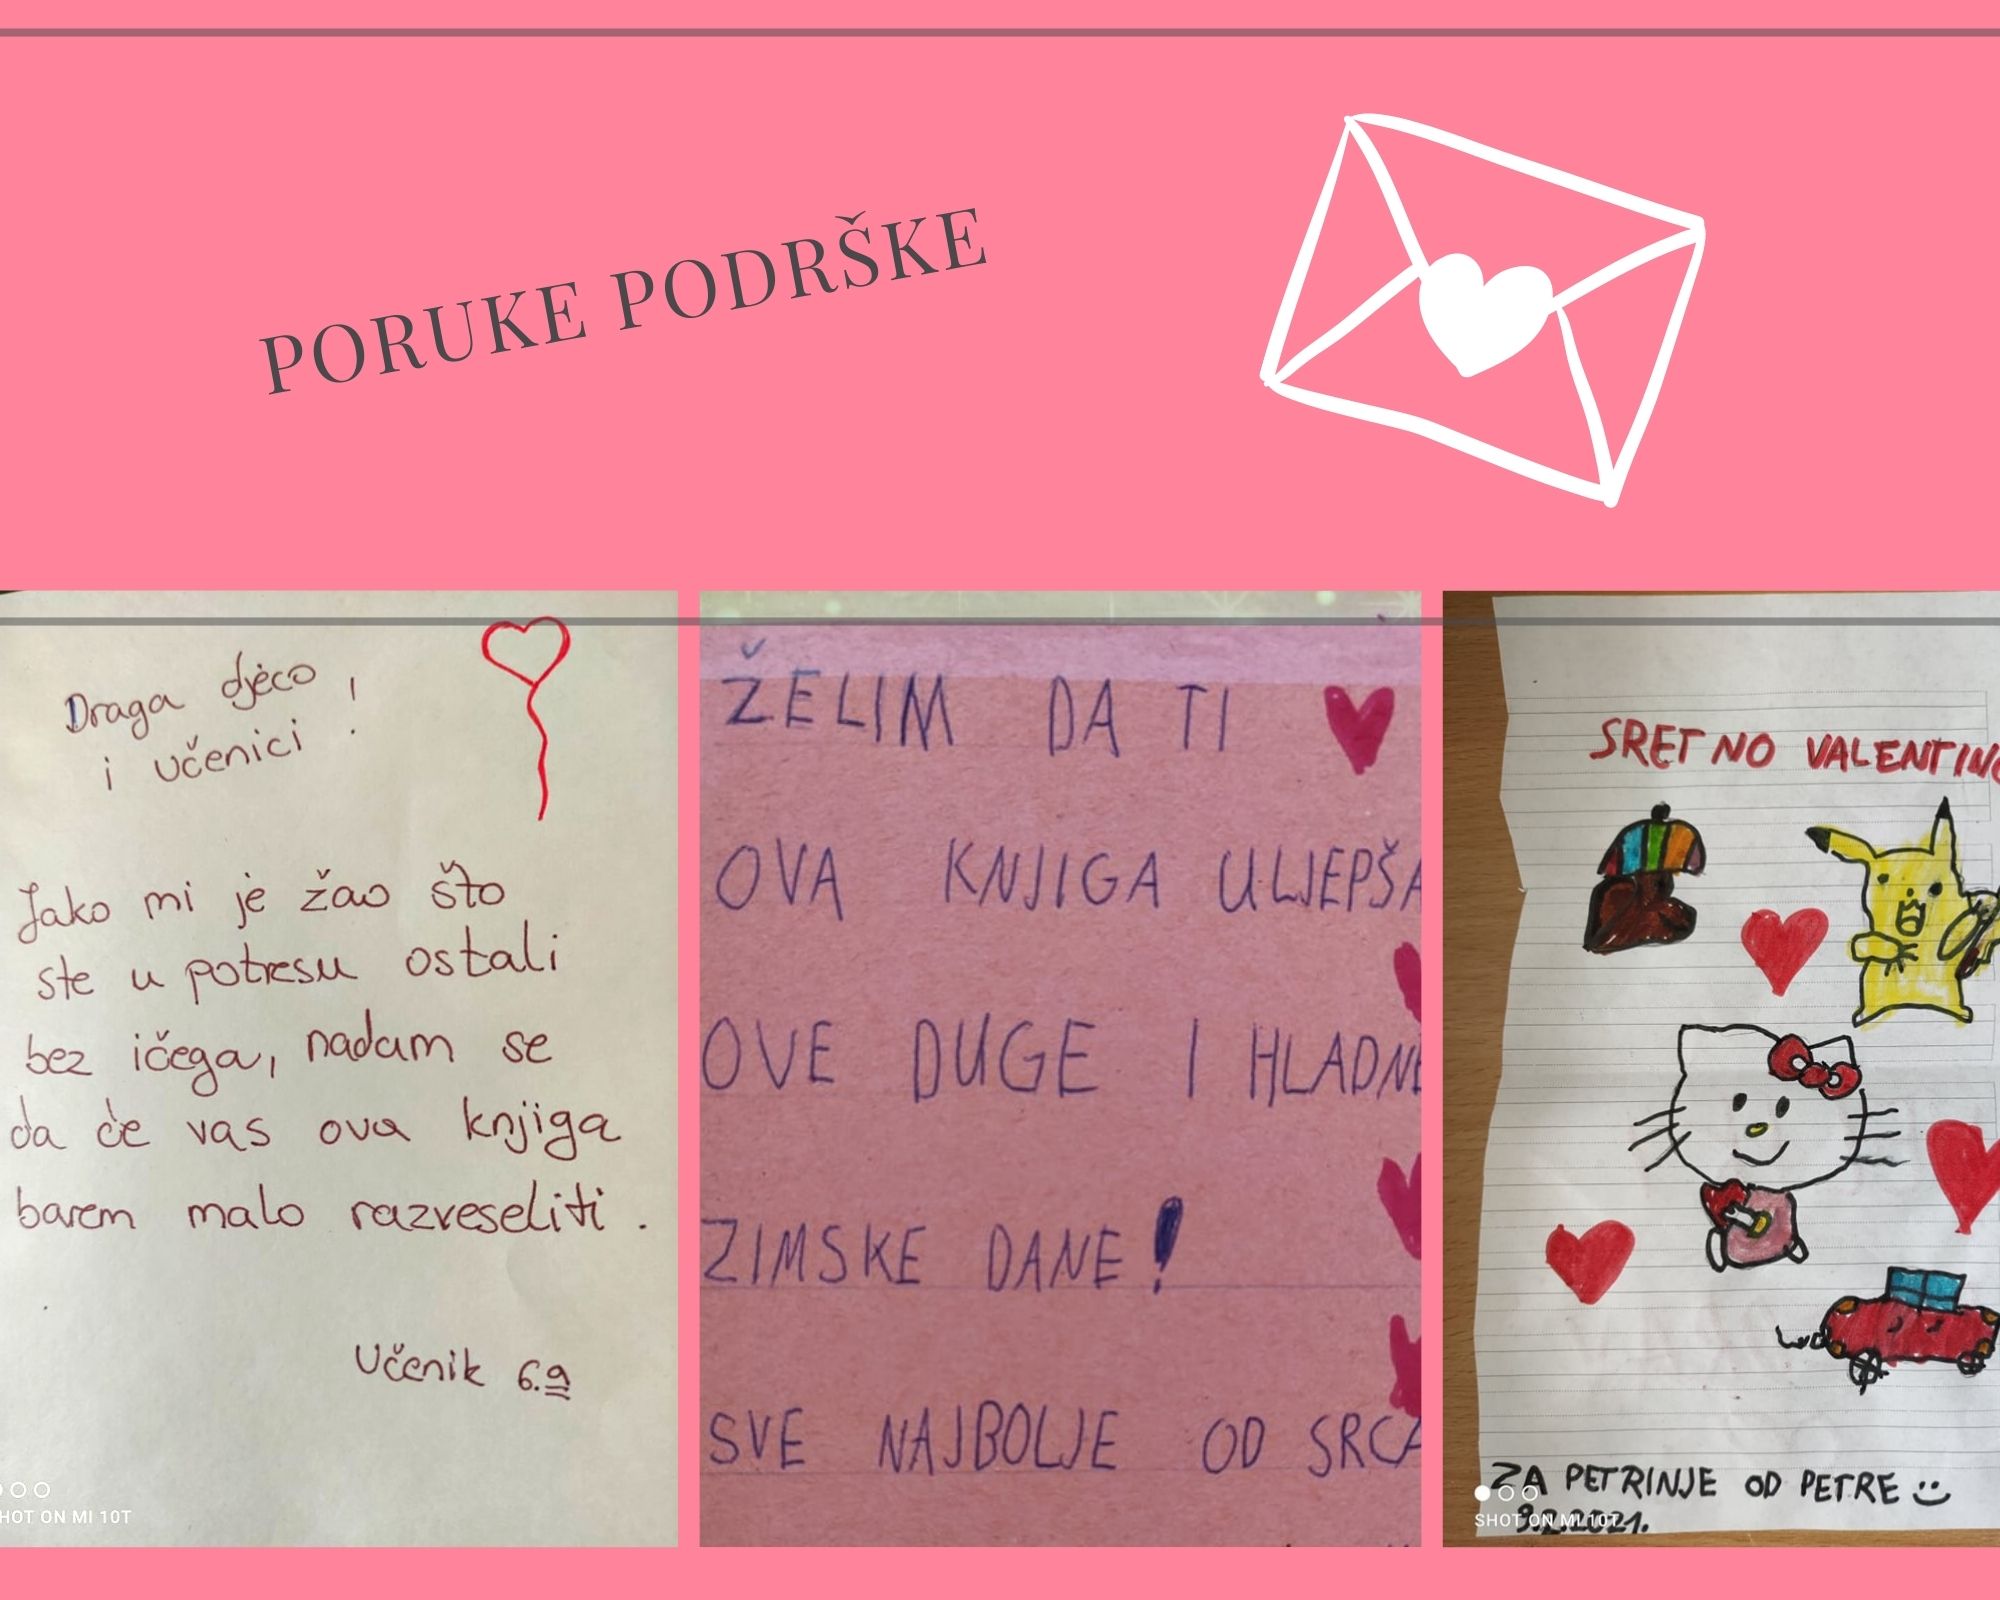 PORUKE PODRŠKE
Draga djeco
i učenici !
Jako mi je žao što
ste u potresu ostali
bez ičega, nadam se
da će vas ova knjiga
barem malo razveseliti .
Učenik 6.a
SHOT ON MI 10T
ŽELIM DA TI
OVA KNJIGA ULJEPŠA
OVE DUGE I HLADNE
ZIMSKE DANE!
SVE NAJBOLJE OD SRCA
SRETNO VALENTINO
ZA PETRINJE OD PETRE
9.2.2021.
SHOT ON MI 10T